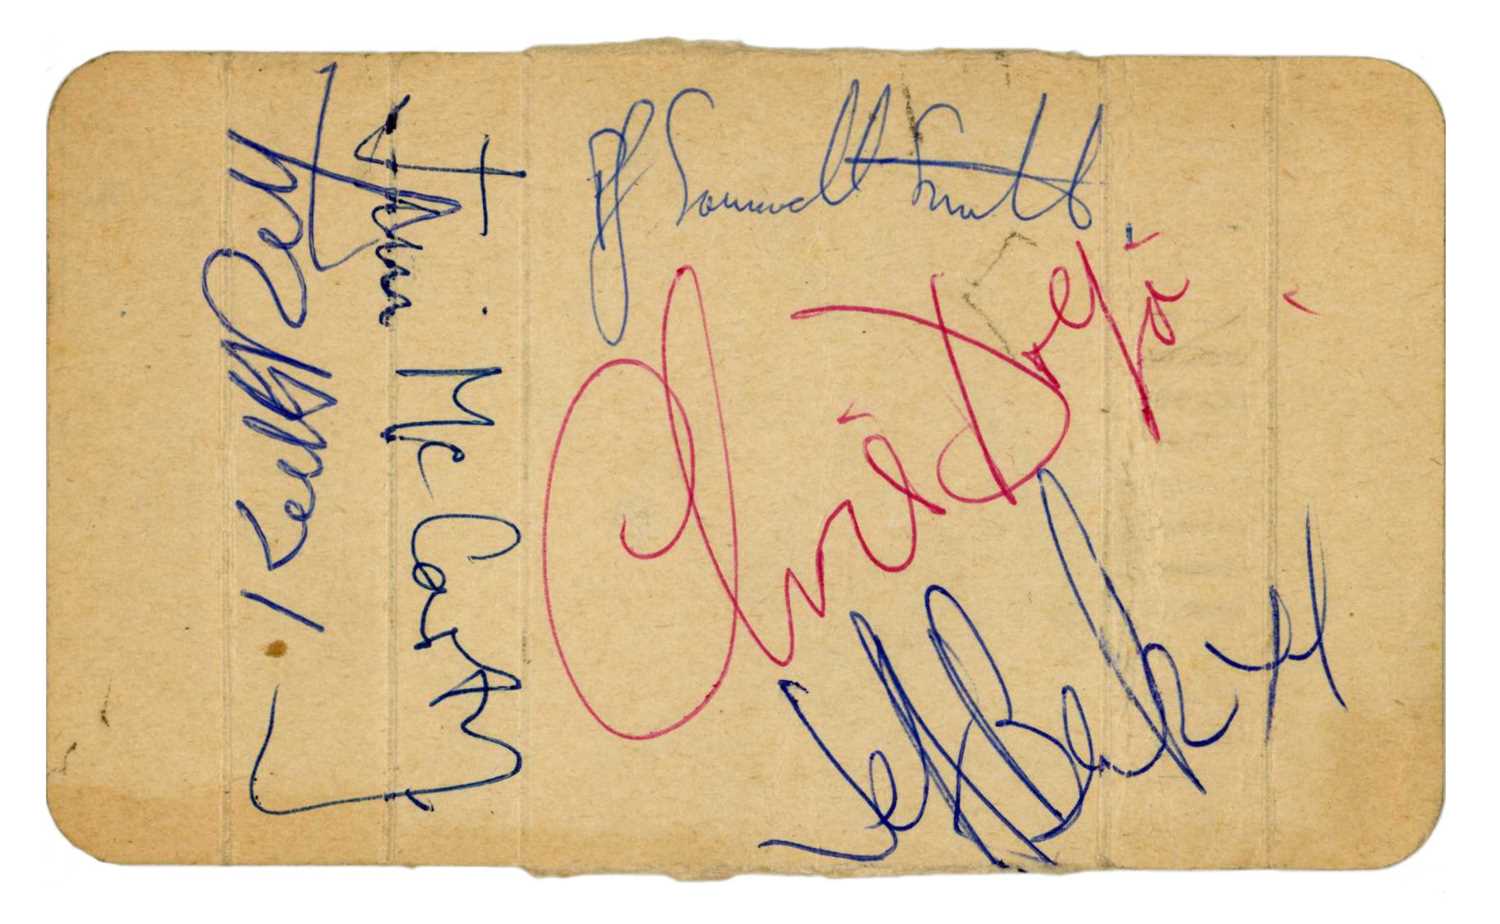 P Samwell Smith
Chris Dreja
Jeff Beck
Jim Mc Carty
Keith Relf